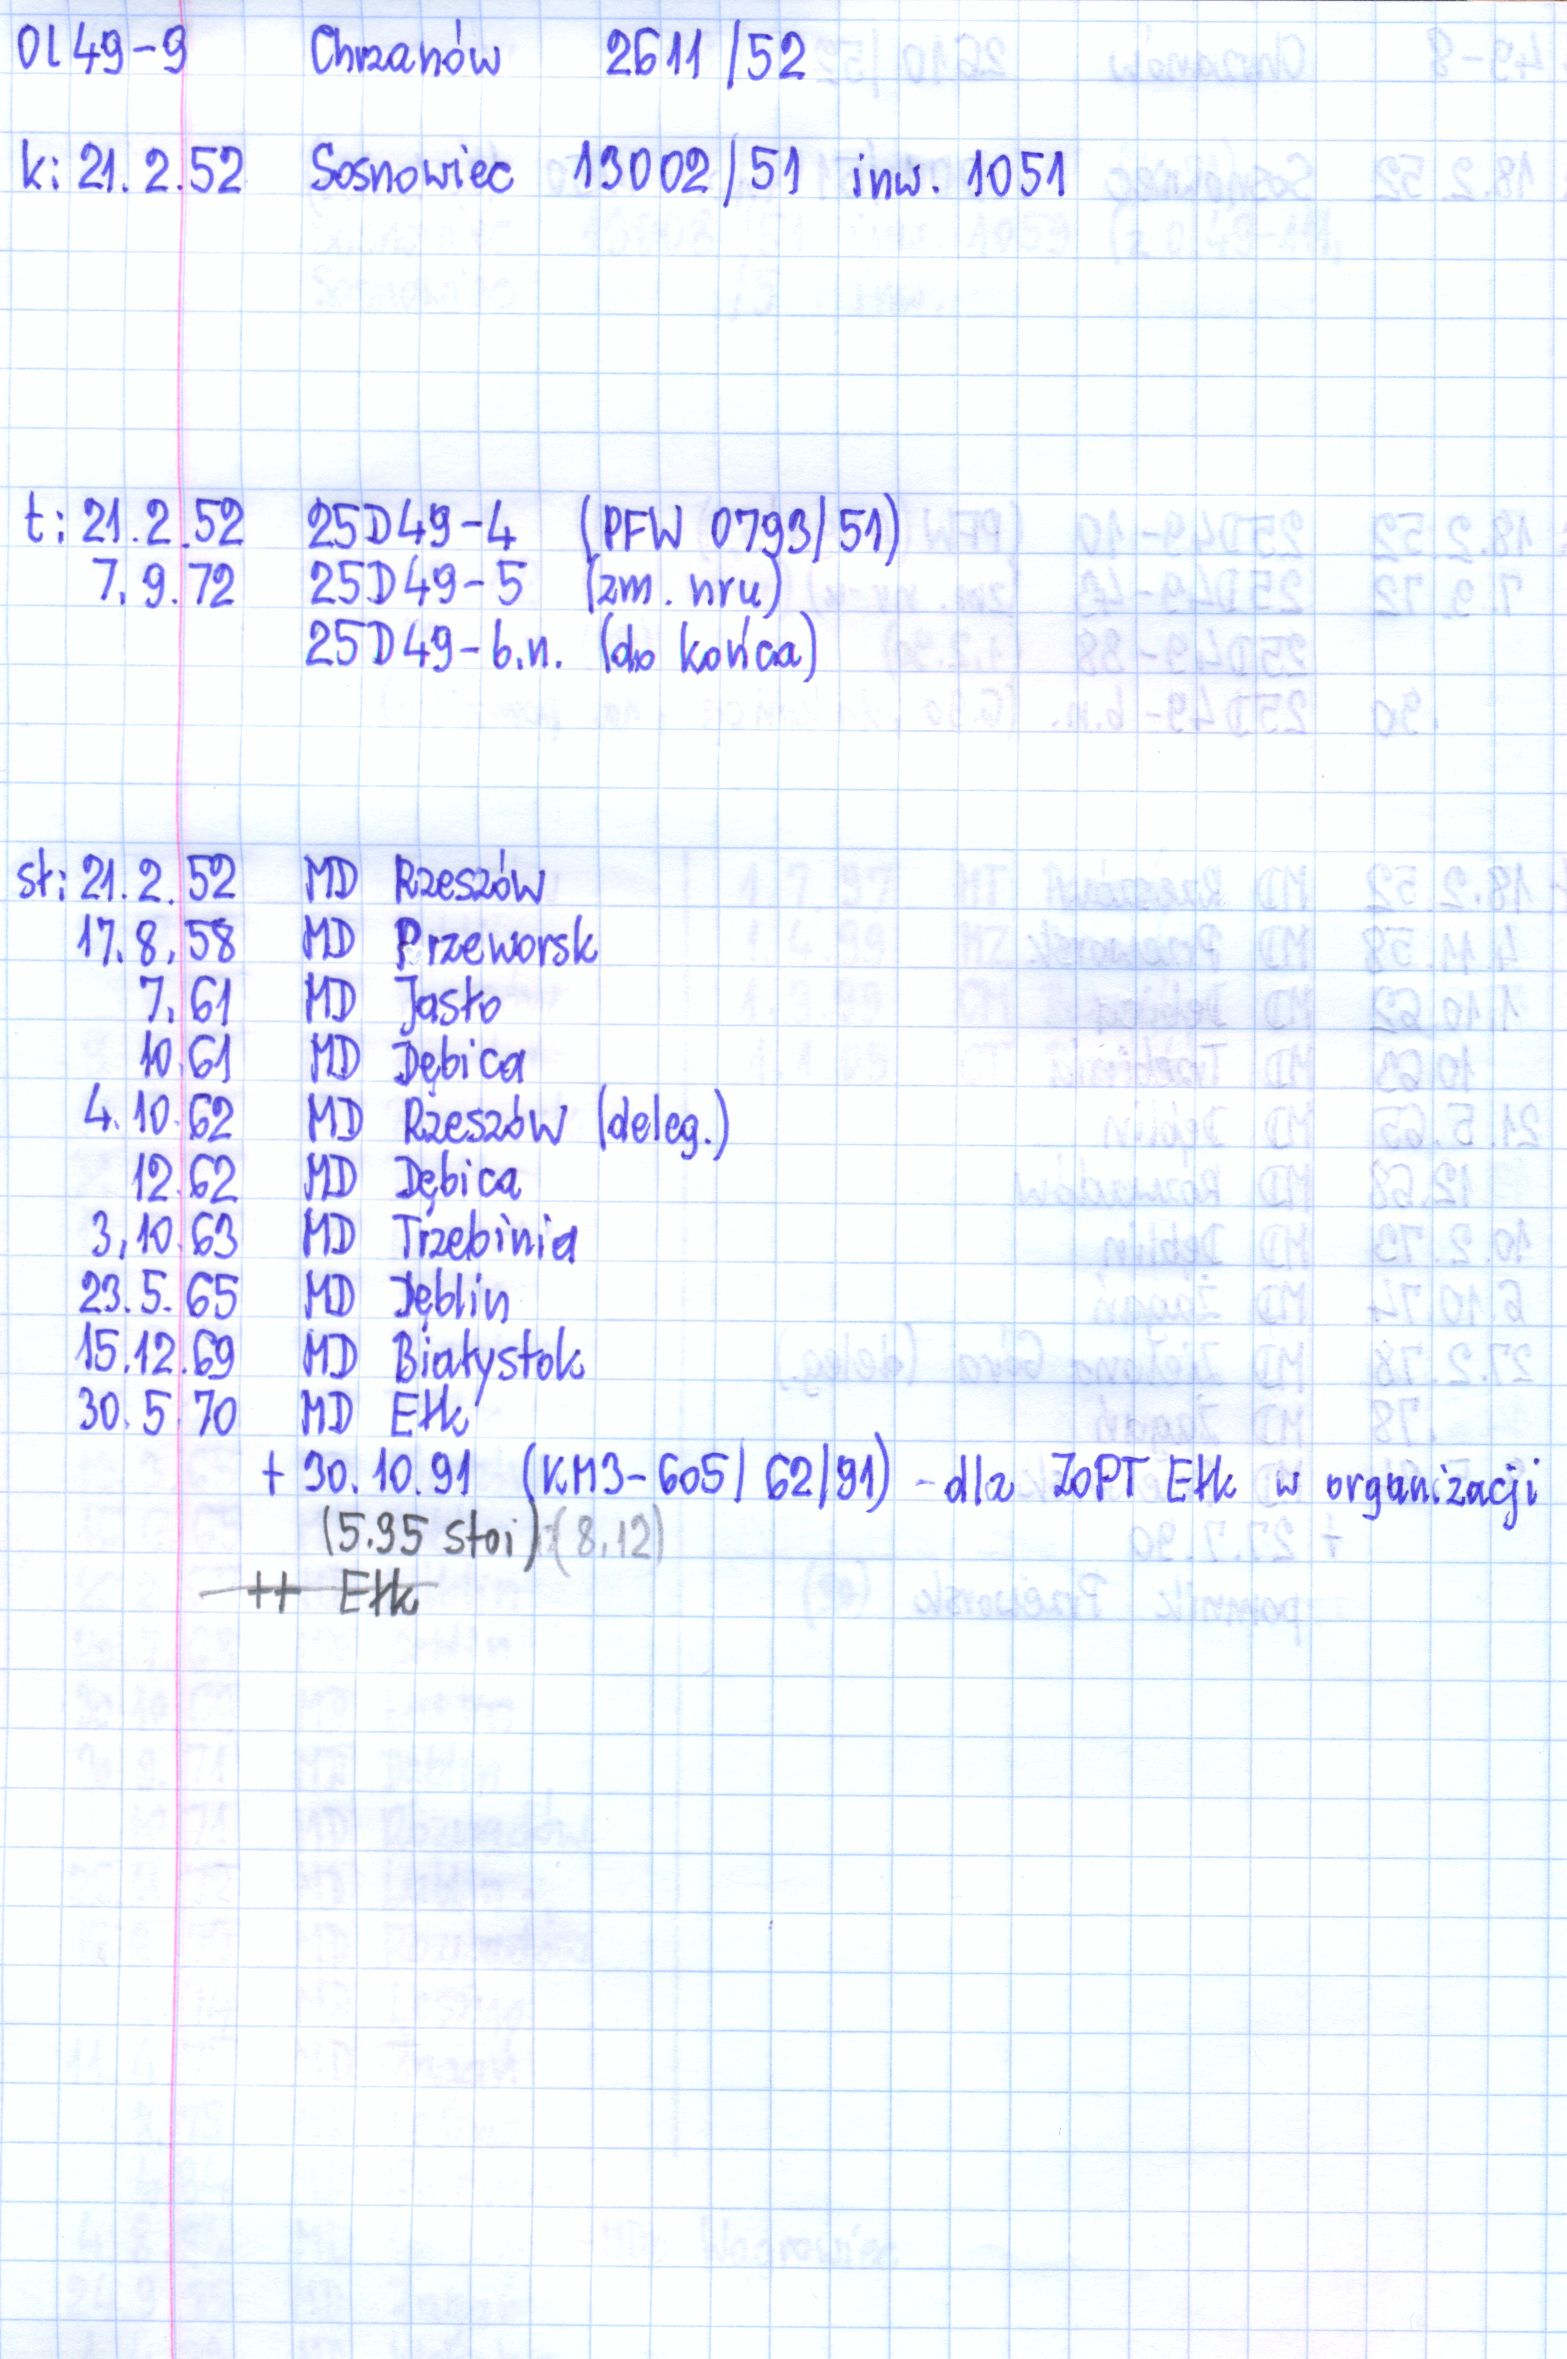 Ol 49-9 Chrzanów 2611/52
k: 21.2.52 Sosnowiec 13002/51 inw. 1051
t: 21.2.52 25D49-4 (PFW 0793/51)
7.9.72 25D49-5 (zm. nru)
25D49-b.n. (do końca)
st: 21.2.52 MD Rzeszów
17.8.58 MD Przeworsk
7.61 MD Jasło
10.61 MD Dębica
4.10.62 MD Rzeszów (deleg.)
12.62 MD Dębica
3.10.63 MD Trzebinia
23.5.65 MD Dęblin
15.12.69 MD Białystok
30.5.70 MD Ełk
+ 30.10.91 (KM3-605/62/91) - dla ZOPT Ełk w organizacji
(5.95 stoi) (8.12)
++ Ełk